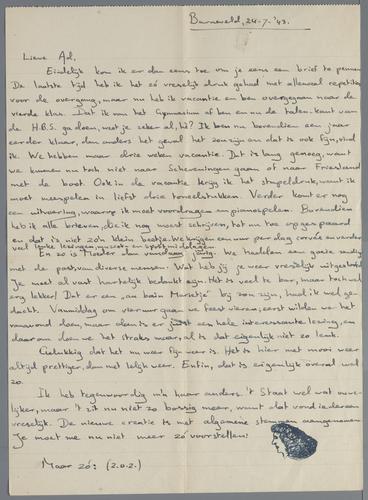 Barneveld, 24-7-'43.
Lieve Ad,
Eindelijk kom ik er dan eens toe om je eens een brief te pennen.
De laatste tijd heb ik het zó vreselijk druk gehad met allemaal repetities
voor de overgang, maar nu heb ik vacantie en ben overgegaan naar de
vierde klas. Dat ik van het Gymnasium af ben en nu de talen-kant van
de H.B.S. ga doen, weet je zeker al, hè? Ik ben nu bovendien een jaar
eerder klaar, dan anders het geval zou zijn en dat is ook fijn, vind
ik. We hebben maar drie weken vacantie. Dat is lang genoeg, want
we kunnen nu toch niet naar Scheveningen gaan of naar Friesland
met de boot. Ook in de vacantie krijg ik het stapeldruk, want ik
moet meespelen in liefst drie toneelstukken. Verder komt er nog
een uitvoering, waarop ik moet voordragen en pianospelen. Bovendien
heb ik alle brieven, die ik nog moest schrijven, tot nu toe opgespaard
en dat is niet zo'n klein beetje. We krijgen een uur per dag corvée en verder
veel leuke lezingen, muziek- en sportmiddagen.
En zo is Moeder dan vandaag jarig. We hadden een goeie
met de post van diverse mensen. Wat heb jij je weer vreselijk uitgesloofd
Je moet al vast hartelijk bedankt zijn. Het is veel te bar, maar toch wel
erg lekker! Dat er een "au bain Marietje" bij zou zijn, had ik wel ge-
dacht. Vanmiddag om vier uur gaan we feest vieren; eerst wilden we het
vanavond doen, maar dan is er juist een hele interessante lezing, en
daarom doen we het straks maar, al is dat eigenlijk niet zo leuk.
Gelukkig dat het nu weer fijn weer is. Het is hier met mooi weer
altijd prettiger, dan met lelijk weer. Enfin, dat is eigenlijk overal wel
zo.
Ik heb tegenwoordig m'n haar anders. 't Staat wel wat ouwe-
lijker, maar 't zit nu niet zo bossig meer, want dat vond iedereen
vreselijk. De nieuwe creatie is met algemene stemmen aangenomen
Je moet me nu niet meer zó voorstellen!
Maar zó: (z.o.z.)